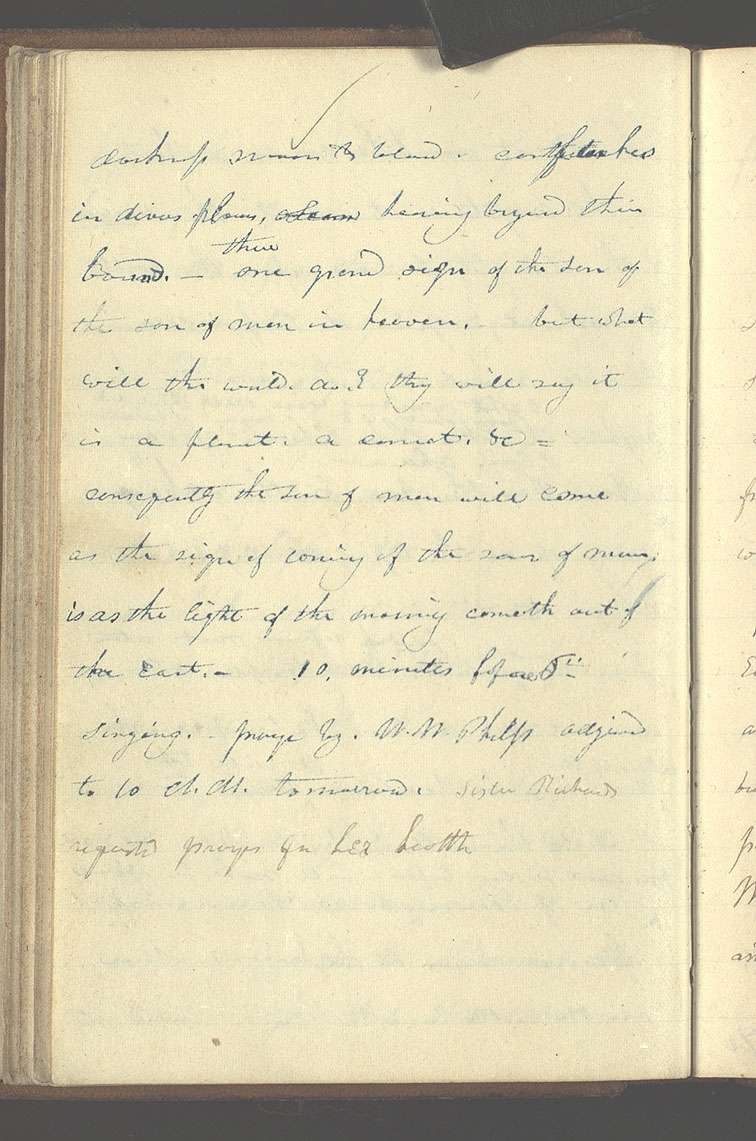 darkness moon to blood. earthquakes
in divers places, heaving beyond their
bound. —
then
one grand sign of the son of
the son of man in heaven. but what
will the world do? they will say it
is a planet. a comet. &c =
consequently the son of man will come
as the sign of coming of the son of man;
is as the light of the morning cometh out of
the East. — 10. minutes before
singing. - prayer by. W. W. Phelps adjourd
to 10 A.M. tomorrow. Sister Richards
requested prayers for her health